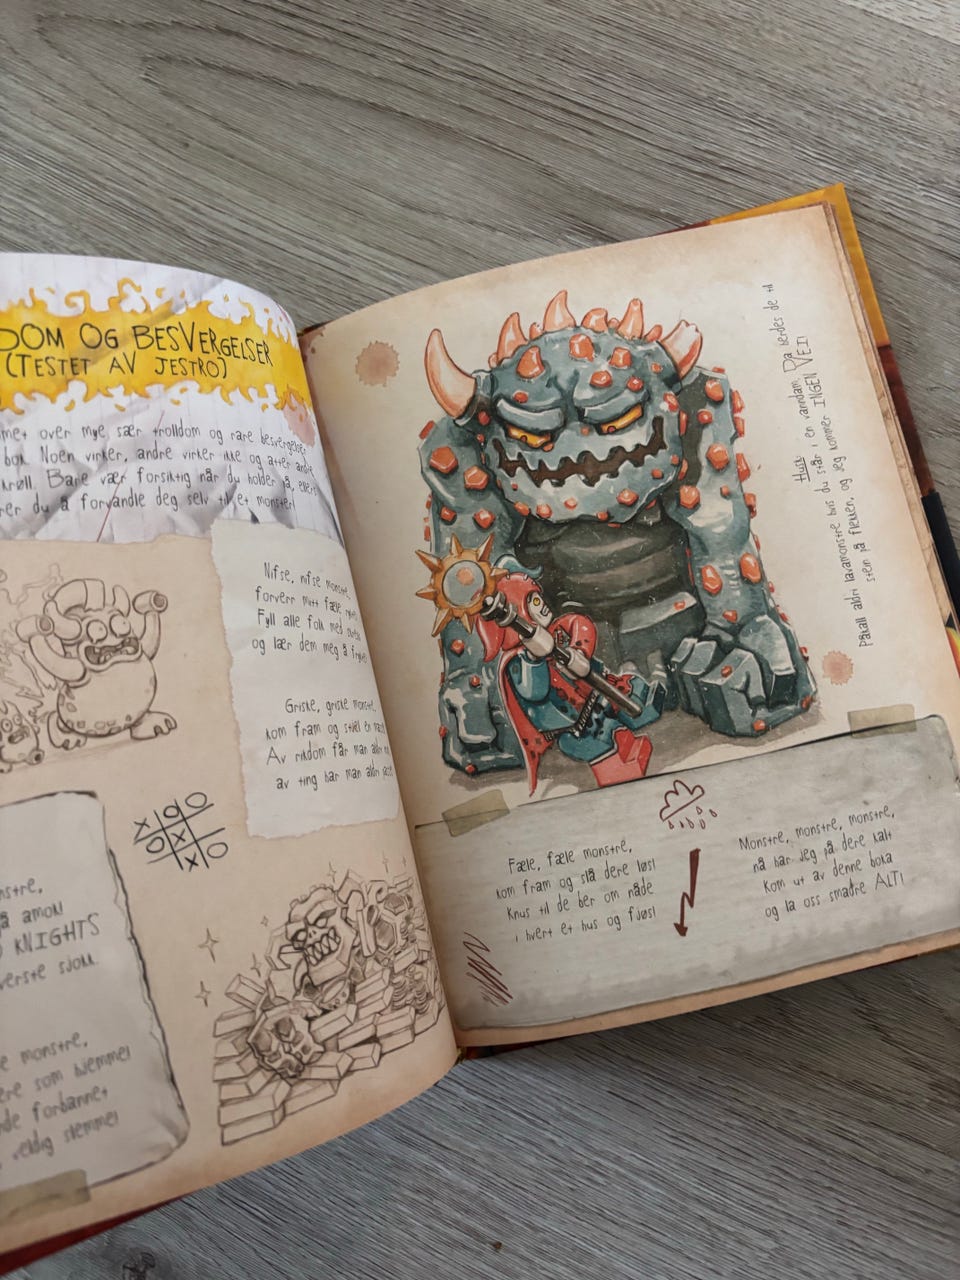 DOM OG BESVERGELSER
(TESTET AV JESTRO)
met over mye sær trolldom og rare besvergelser
bok. Noen virker, andre virker ikke og atter andre
krøll. Bare vær forsiktig når du holder på, ellers
rer du å forvandle deg selv til et monster!
Nifse, nifse monstre,
forverr mitt fæle
Fyll alle folk med
og lær dem meg å
Griske, griske monstre,
kom fram og stjel en
Av rikdom får man aldri
av ting har man aldri
X O O
O X X
X O
nstre,
å amok!
KNIGHTS
verste sjokk.
e monstre,
ere som hjemme!
de forbannet
veldig slemme!
Husk: i en vanndam. Da herdes de til
Påkall aldri lavamonstre hvis du står INGEN VEI!
stein på flekken, og jeg kommer
Fæle, fæle monstre,
kom fram og slå dere løs!
Knus til de ber om nåde
i hvert et hus og fjøs!
Monstre, monstre, monstre,
nå har jeg på dere kalt
Kom ut av denne boka
og la oss smadre ALT!